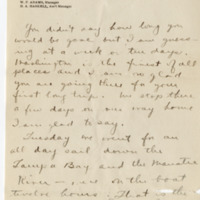 W. P. ADAMS, Manager
H. A. HASKELL, Ass't Manager
You didn't say how long you
would be gone but I am guess-
ing at a week or ten days.
Washington is the finest of all
places and I am so glad
you are going there for your
first long trip. We stop there
a few days on our way home
I am glad to say.
Tuesday we went for an
all day sail down the
Tampa Bay and the Manatee
River — on the boat
twelve hours. That is the